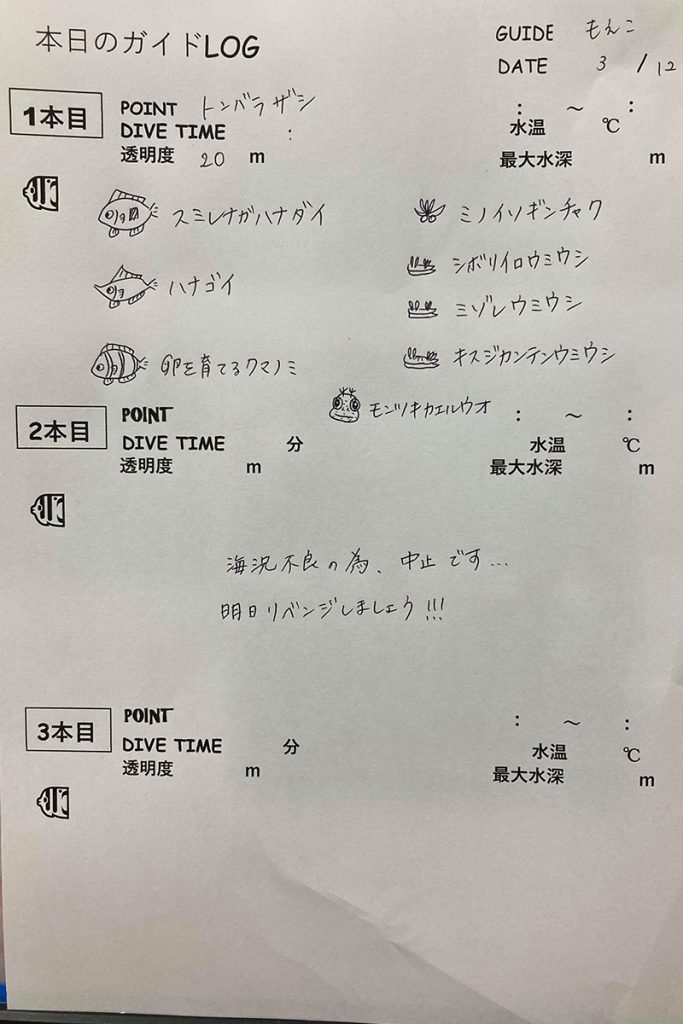 本日のガイドLOG
GUIDE もえこ
DATE 3 / 12
1本目
POINT トンバラザシ
DIVE TIME :
: ～ :
透明度 20 m
水温 ℃
最大水深 m
スミレナガハナダイ
ミノイソギンチャク
シボリイロウミウシ
ハナゴイ
ミゾレウミウシ
卵を育てるクマノミ
キスジカンテンウミウシ
モンツキカエルウオ
2本目
POINT
: ～ :
DIVE TIME 分
水温 ℃
透明度 m
最大水深 m
海況不良の為、中止です...
明日リベンジしましょう!!!
3本目
POINT
: ～ :
DIVE TIME 分
水温 ℃
透明度 m
最大水深 m